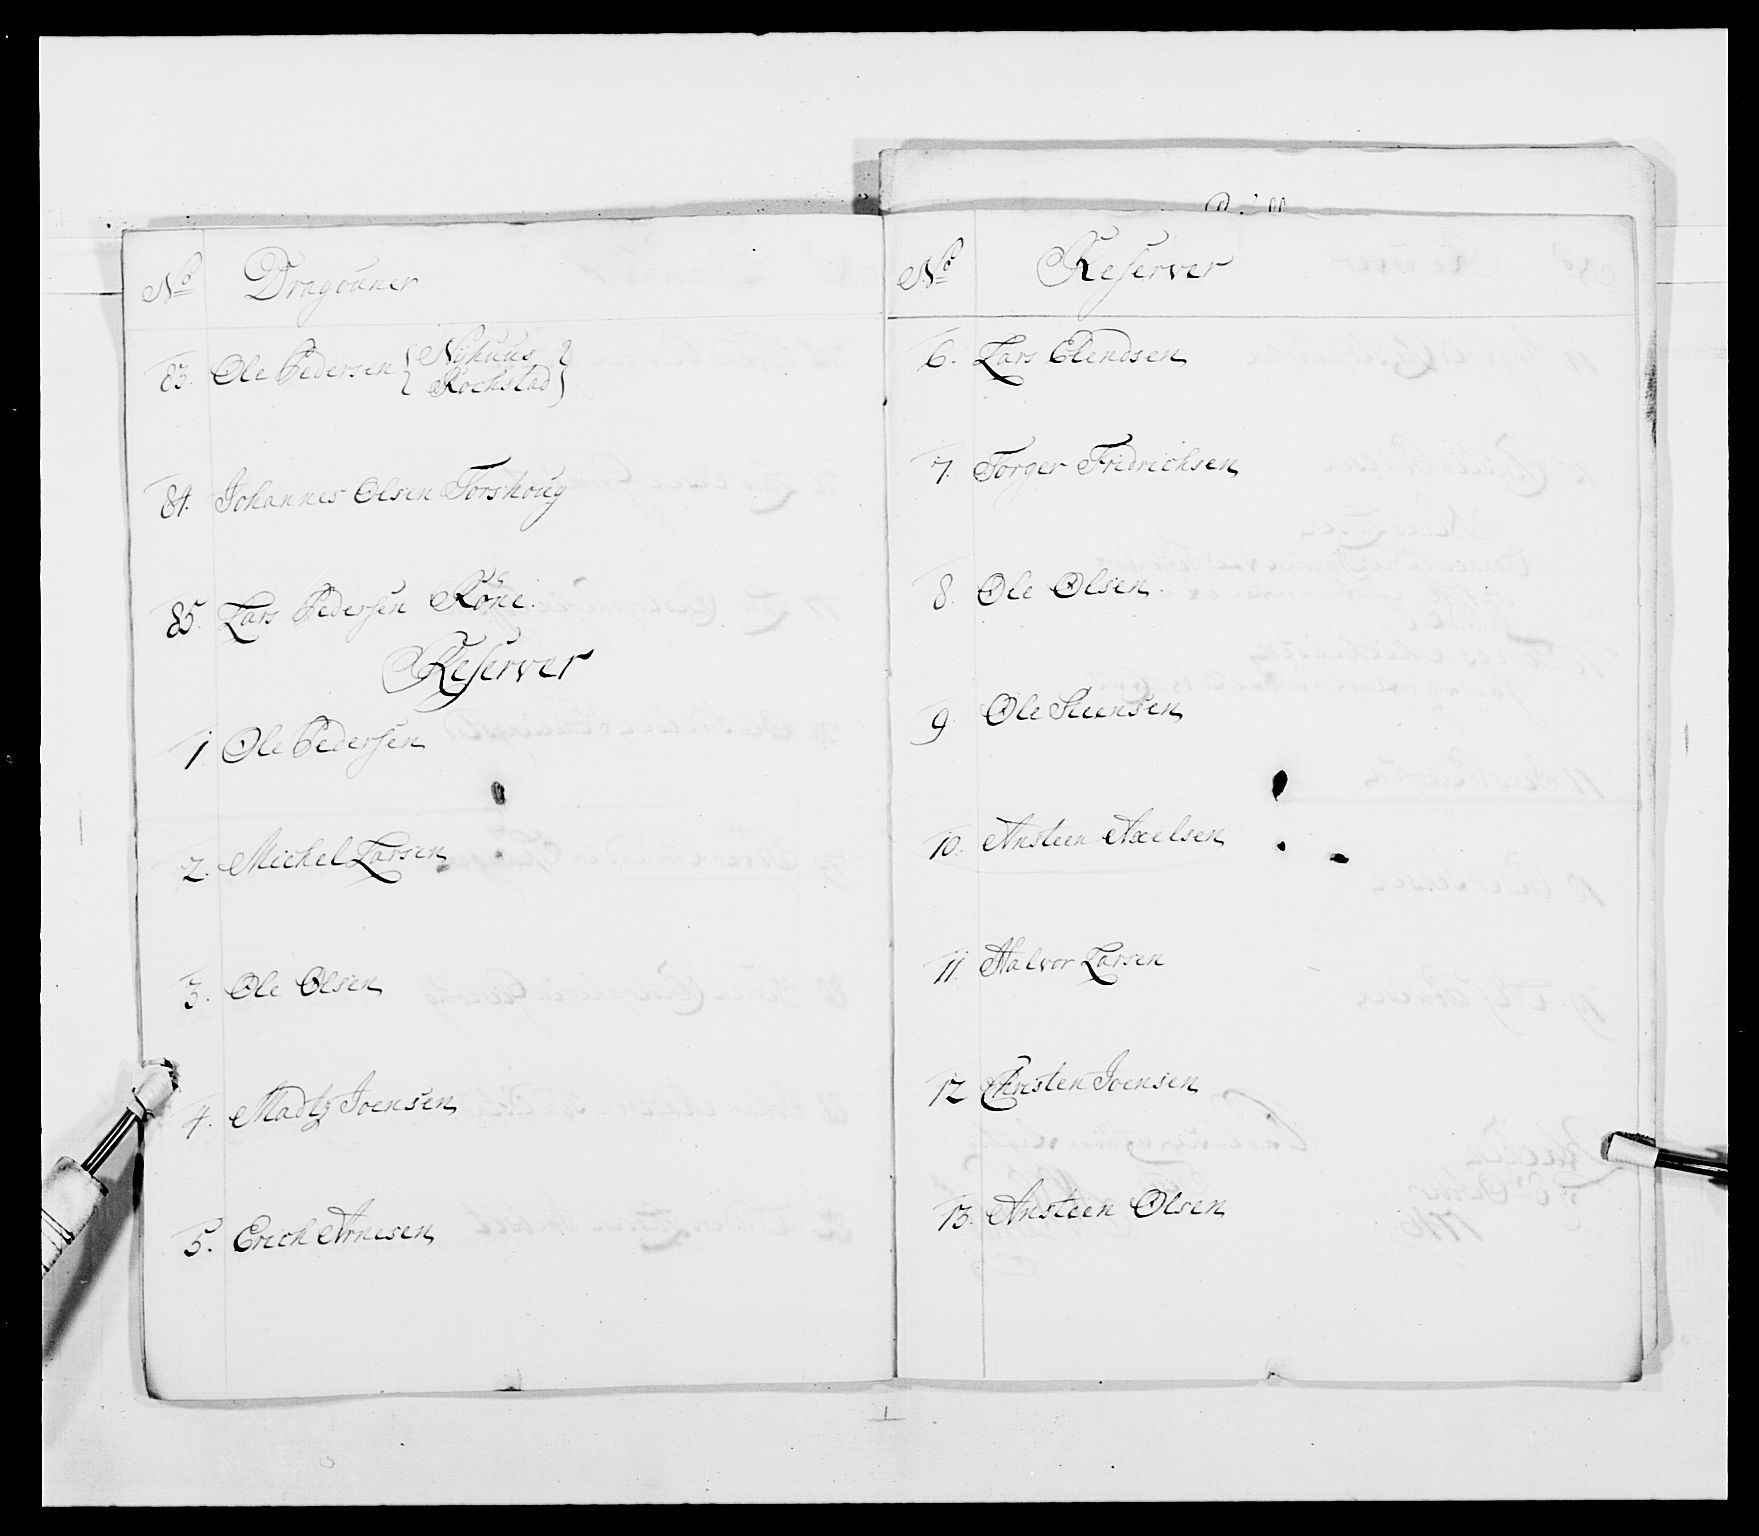 No Dragouner
83. Ole Pedersen { Nyhuus
Rochstad }
84. Johannes Olsen Torshoug
85. Lars Pedersen Röne.
Reserver
1 Ole Pedersen
2. Michel Larsen
3. Ole Olsen
4. Madtz Joensen
5. Erich Arnesen
No Reserver
6. Lars Elendsen
7. Torger Fridrichsen
8. Ole Olsen
9 Ole Steensen
10. Ansteen Axelsen
11. Halvor Larsen
12 Christen Joensen
13. Ansteen Olsen